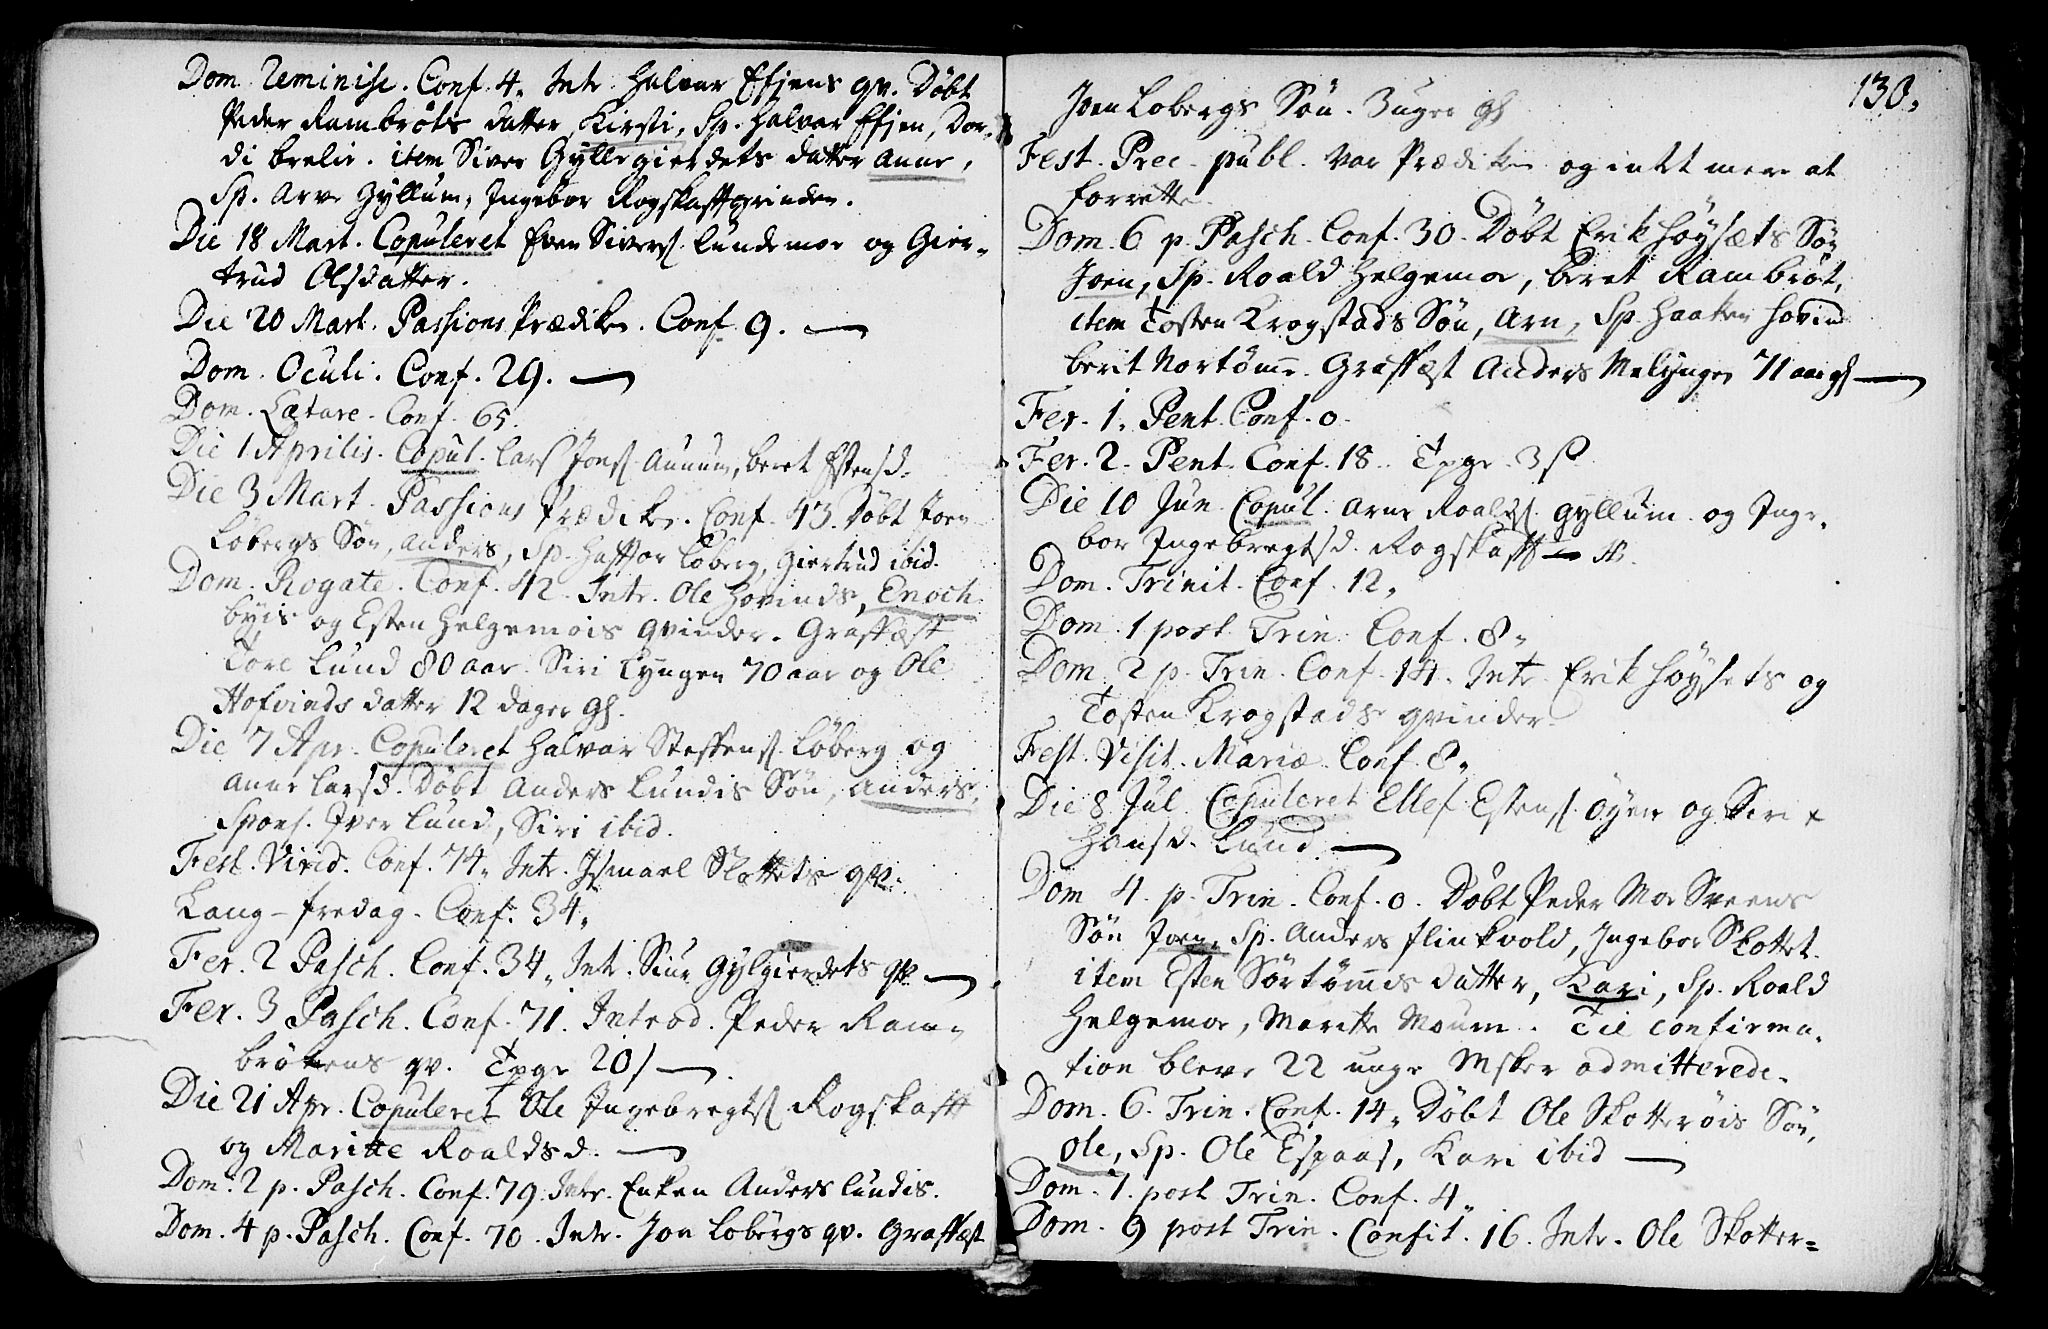 Dom. Reminisc. Conf. 4. Intr. Halvar Efjens qv. Døbt
Peder Rambrøts datter Kirsti, Sp. Halvar Efjen, Dor-
di brelie. item Siver Gyllegierdets datter Anne,
Sp. Arve Gyllum, Ingebor Rogskafftqvinden.
Die 18 Mart. Copuleret Even Sivers. Lundemoe og Gier-
trud Olsdatter.
Die 20 Mart. Passions Prædiken. Conf. 9.
Dom. Oculi. Conf. 29.
Dom. Lætare. Conf. 65.
Die 1 Aprilis. Copul. Lars Jons. Aunum, beret Estensd.
Die 3 Mart. Passions Prædiken. Conf. 43. Døbt Joen
Løbergs Søn, Anders, Sp. Haffor Løberg, Giertrud ibid.
Dom. Rogate. Conf. 42. Intr. Ole Hovinds, Enoch
byis og Esten Helgemois qvinder. Graffæst
Tore Lund 80 aar. Siri Lyngen 70 aar og Ole
Hofvinds datter 12 dager gl.
Die 7 Apr. Copuleret Halvar Steffens. Løberg og
Anne Larsd. Døbt Anders Lundis Søn, Anders,
Spons. Iver Lund, Siri ibid.
Fest. Virid. Conf. 74. Intr. Ismael Slottets qv.
Lang-fredag. Conf. 34.
Fer. 2 Pasch. Conf. 34. Intr. Siur Gylgierdets qv.
Fer. 3 Pasch. Conf. 71. Introd. Peder Ram-
brøtens qv. Tpge 20 s
Die 21 Apr. Copuleret Ole Ingebregts. Rogskafft
og Maritte Roaldsd.
Dom. 2 p. Pasch. Conf. 79. Intr. Enken Anders Lundis.
Dom. 4 p. Pasch. Conf. 70. Intr. Jon Lobergs qv. Graffæst
130.
Joen Lobergs Søn. 3 uger gl
Fest. Prec. publ. var Prædiken og intet mere at
forrette.
Dom. 6 p. Pasch. Conf. 30. Døbt Erik Høysæts Søn
Joen, Sp. Roald Helgemoe, Beret Rambrøt,
item Tosten Krogstads Søn, Arn, Sp. Haaken Hovin
berit Nortømme. Graffæst Anders Mælyngen 71 aar gl
Fer. 1. Pent. Conf. 0.
Fer. 2. Pent. Conf. 18. Tpge 3 s
Die 10 Jun. Copul. Arne Roalds. Gyllum og Inge-
bor Ingebregtsd. Rogskafft
Dom. Trinit. Conf. 12.
Dom. 1 post Trin. Conf. 8.
Dom. 2 p. Trin. Conf. 14. Intr. Erik Høysets og
Tosten Krogstads qvinder.
Fest. Visit. Mariæ. Conf. 8.
Die 8 Jul. Copuleret Ellef Estens. Øyen og Siri
Hansd. Lund.
Dom 4. p. Trin. Conf. 0. Døbt Peder Moe Sveens
Søn Joen, Sp. Anders flinkvold, Ingebor Slottet.
item Esten Sørtømmes datter, Kari, Sp. Roald
Helgemoe, Maritte Moum. Til confirma-
tion bleve 22 unge Msker admitterede.
Dom. 6. Trin. Conf. 14. Døbt Ole Skotterøis Søn,
Ole, Sp. Ole Espaas, Kari ibid
Dom. 7. post Trin. Conf. 4.
Dom. 9 post Trin. Confit. 16. Intr. Ole Skotter=